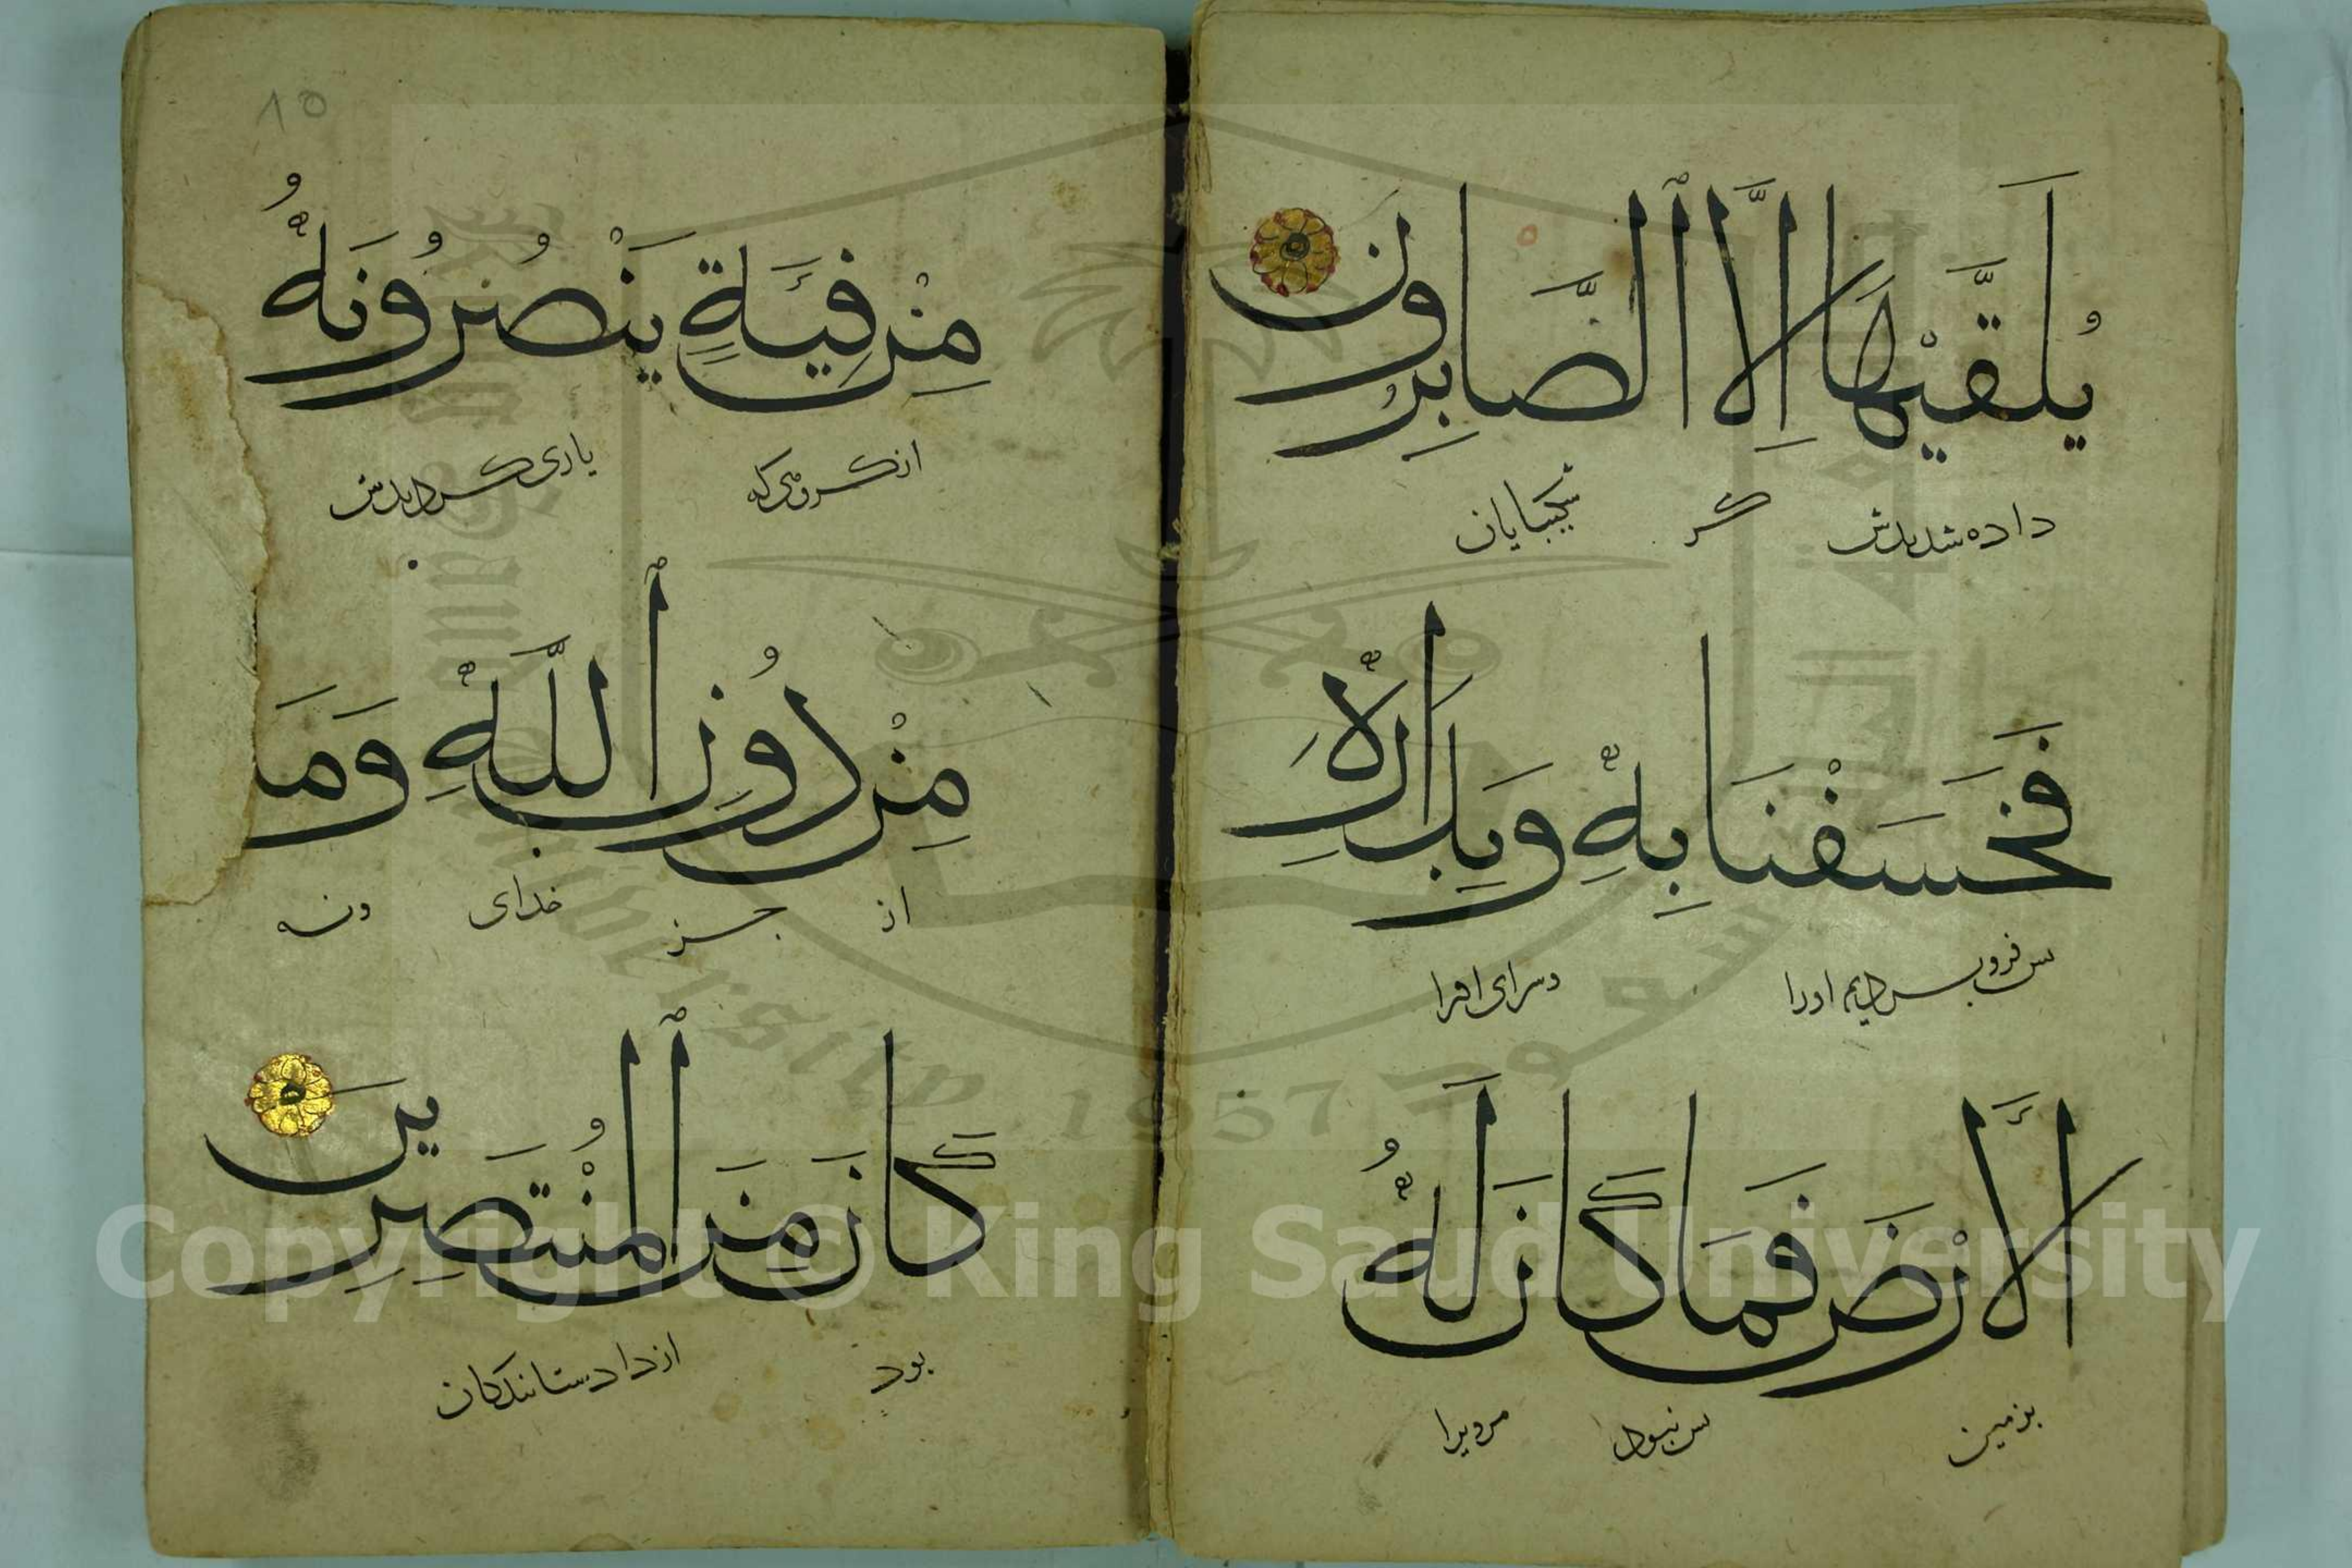 يُلَقَّيٰهَا إِلَّا ٱلصَّابِرُونَ
داده شدندش گر شکیبایان
فَخَسَفْنَا بِهِ وَبِدَارِهِ
بس فرو بردیم اورا وسرای اورا
ٱلْأَرْضَ فَمَا كَانَ لَهُ
بزمین بس نبود مرویرا
١٥
مِنْ فِئَةٍ يَنْصُرُونَهُ
از گروهی که یاری کردندش
مِنْ دُونِ ٱللَّهِ وَمَا
از جز خدای ونه
كَانَ مِنَ ٱلْمُنْتَصِرِينَ
بود از داد ستانندکان
Copyright © King Saud University
1957